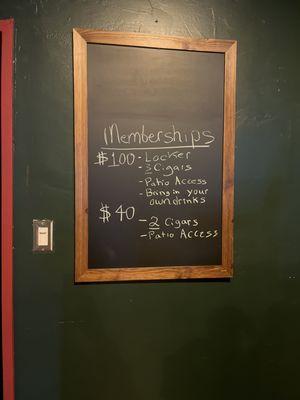 Memberships
$100 - Locker
- 3 Cigars
- Patio Access
- Bring in your
own drinks
$40
- 2 Cigars
- Patio Access